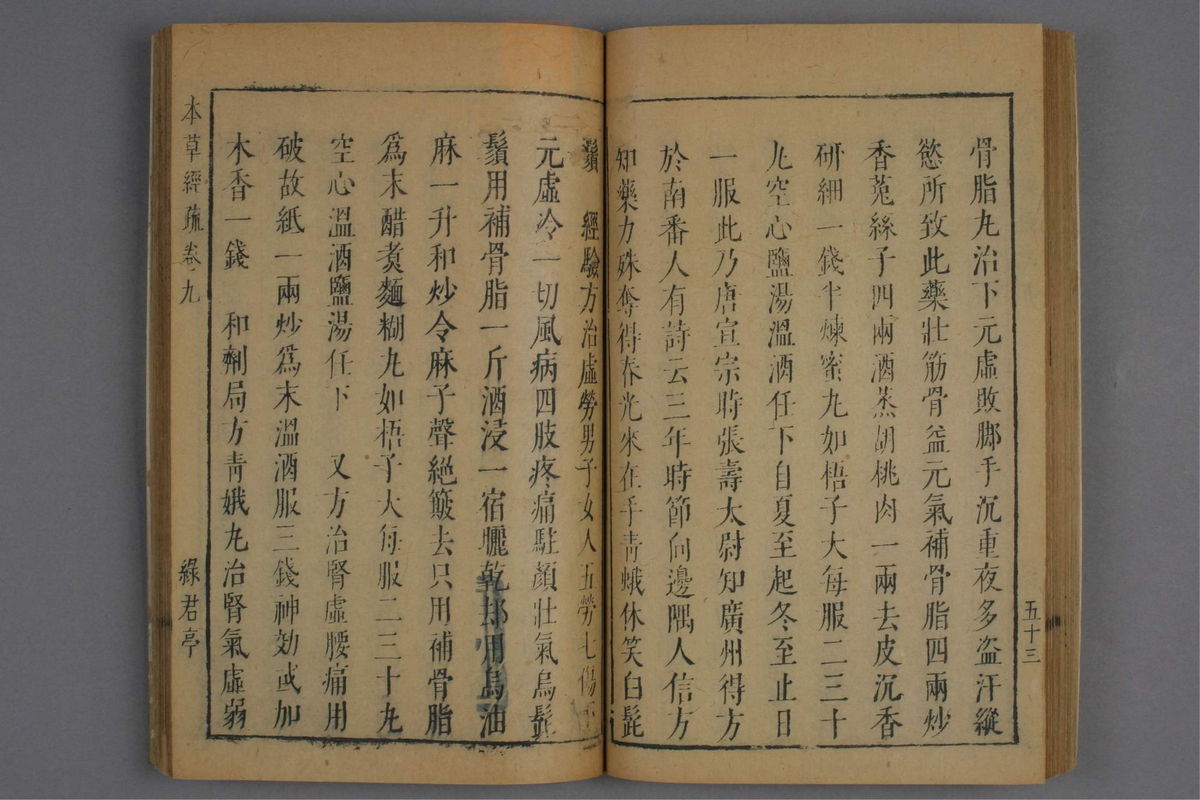 五十三
骨脂丸治下元虛敗脚手沉重夜多盜汗縱
慾所致此藥壯筋骨益元氣補骨脂四兩炒
香菟絲子四兩酒蒸胡桃肉一兩去皮沉香
研細一錢半煉蜜丸如梧子大每服二三十
丸空心鹽湯溫酒任下自夏至起冬至止日
一服此乃唐宣宗時張壽太尉知廣州得方
於南番人有詩云三年時節向邊隅人信方
知藥力殊奪得春光來在手青蛾休笑白髭
鬚 經驗方治虛勞男子女人五勞七傷下
元虛冷一切風病四肢疼痛駐顏壯氣烏髭
鬚用補骨脂一斤酒浸一宿曬乾却用烏油
麻一升和炒令麻子聲絕簸去只用補骨脂
爲末醋煑麵糊丸如梧子大每服二三十丸
空心溫酒鹽湯任下 又方治腎虛腰痛用
破故紙一兩炒爲末溫酒服三錢神効或加
木香一錢 和劑局方靑娥丸治腎氣虛弱
本草經疏卷九 綠君亭